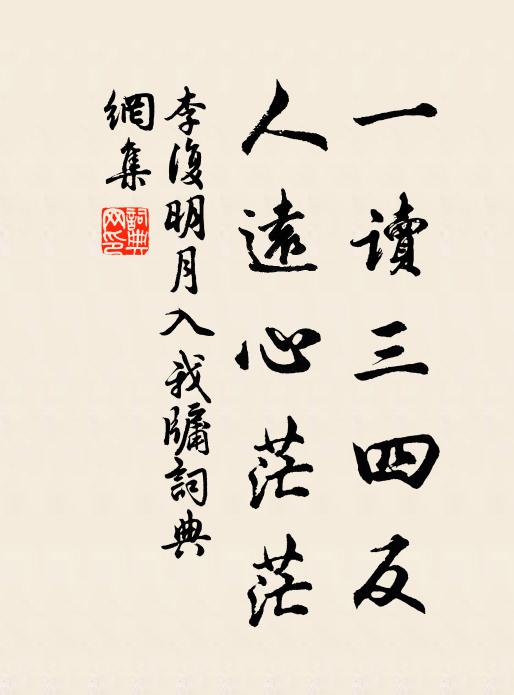 一讀三四反
人遠心茫茫
李復明月入我牖詞典
網集
詞典
网印